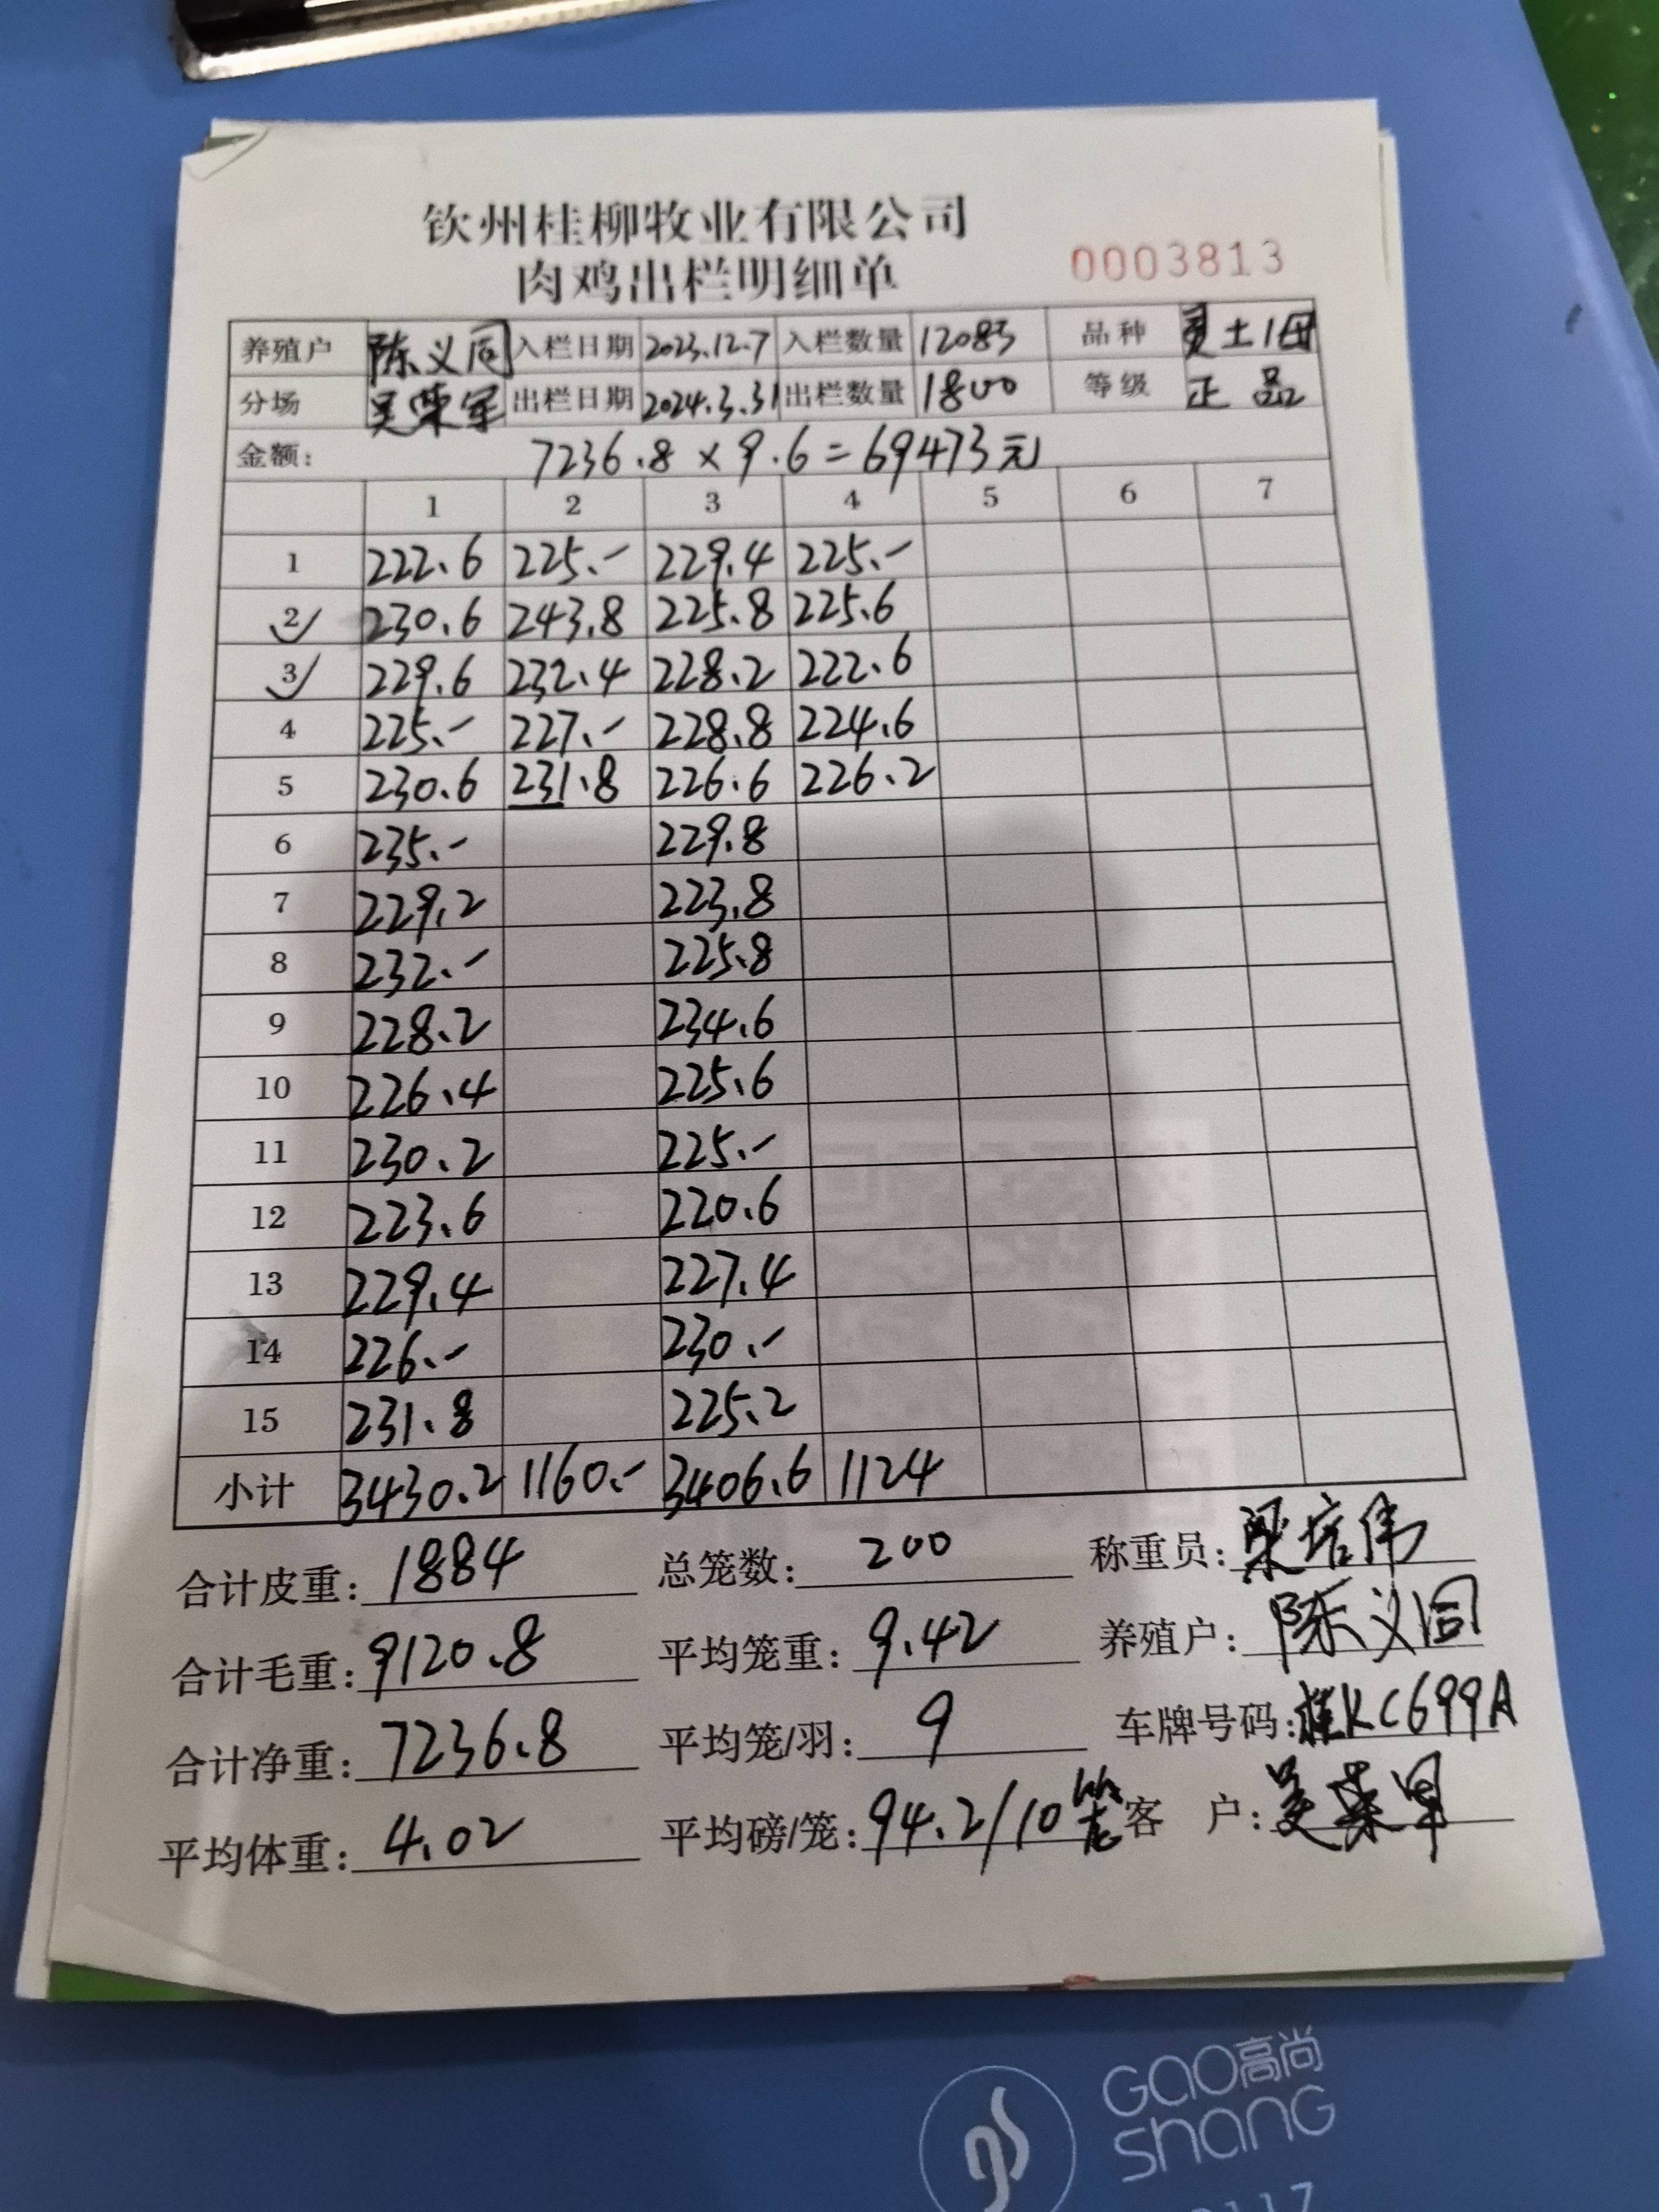 钦州桂柳牧业有限公司
肉鸡出栏明细单 0003813
养殖户 陈义同 入栏日期 2023.12.7 入栏数量 12083 品种 土1
分场 吴荣军 出栏日期 2024.3.31 出栏数量 1800 等级 正品
金额: 7236.8×9.6=69473元
1 2 3 4 5 6 7
1 222.6 225.- 229.4 225.-
2 230.6 243.8 225.8 225.6
3 229.6 232.4 228.2 222.6
4 225.- 227.- 228.8 224.6
5 230.6 231.8 226.6 226.2
6 235.- 229.8
7 229.2 223.8
8 232.- 225.8
9 228.2 234.6
10 226.4 225.6
11 230.2 225.-
12 223.6 220.6
13 229.4 227.4
14 226.- 230.-
15 231.8 225.2
小计 3430.2 1160.- 3406.6 1124
合计皮重: 1884 总笼数: 200 称重员: 梁培伟
合计毛重: 9120.8 平均笼重: 9.42 养殖户: 陈义同
合计净重: 7236.8 平均笼/羽: 9 车牌号码: 桂KC699A
平均体重: 4.02 平均磅/笼: 94.2/10笼 客 户: 吴荣军
GAO高尚
shang